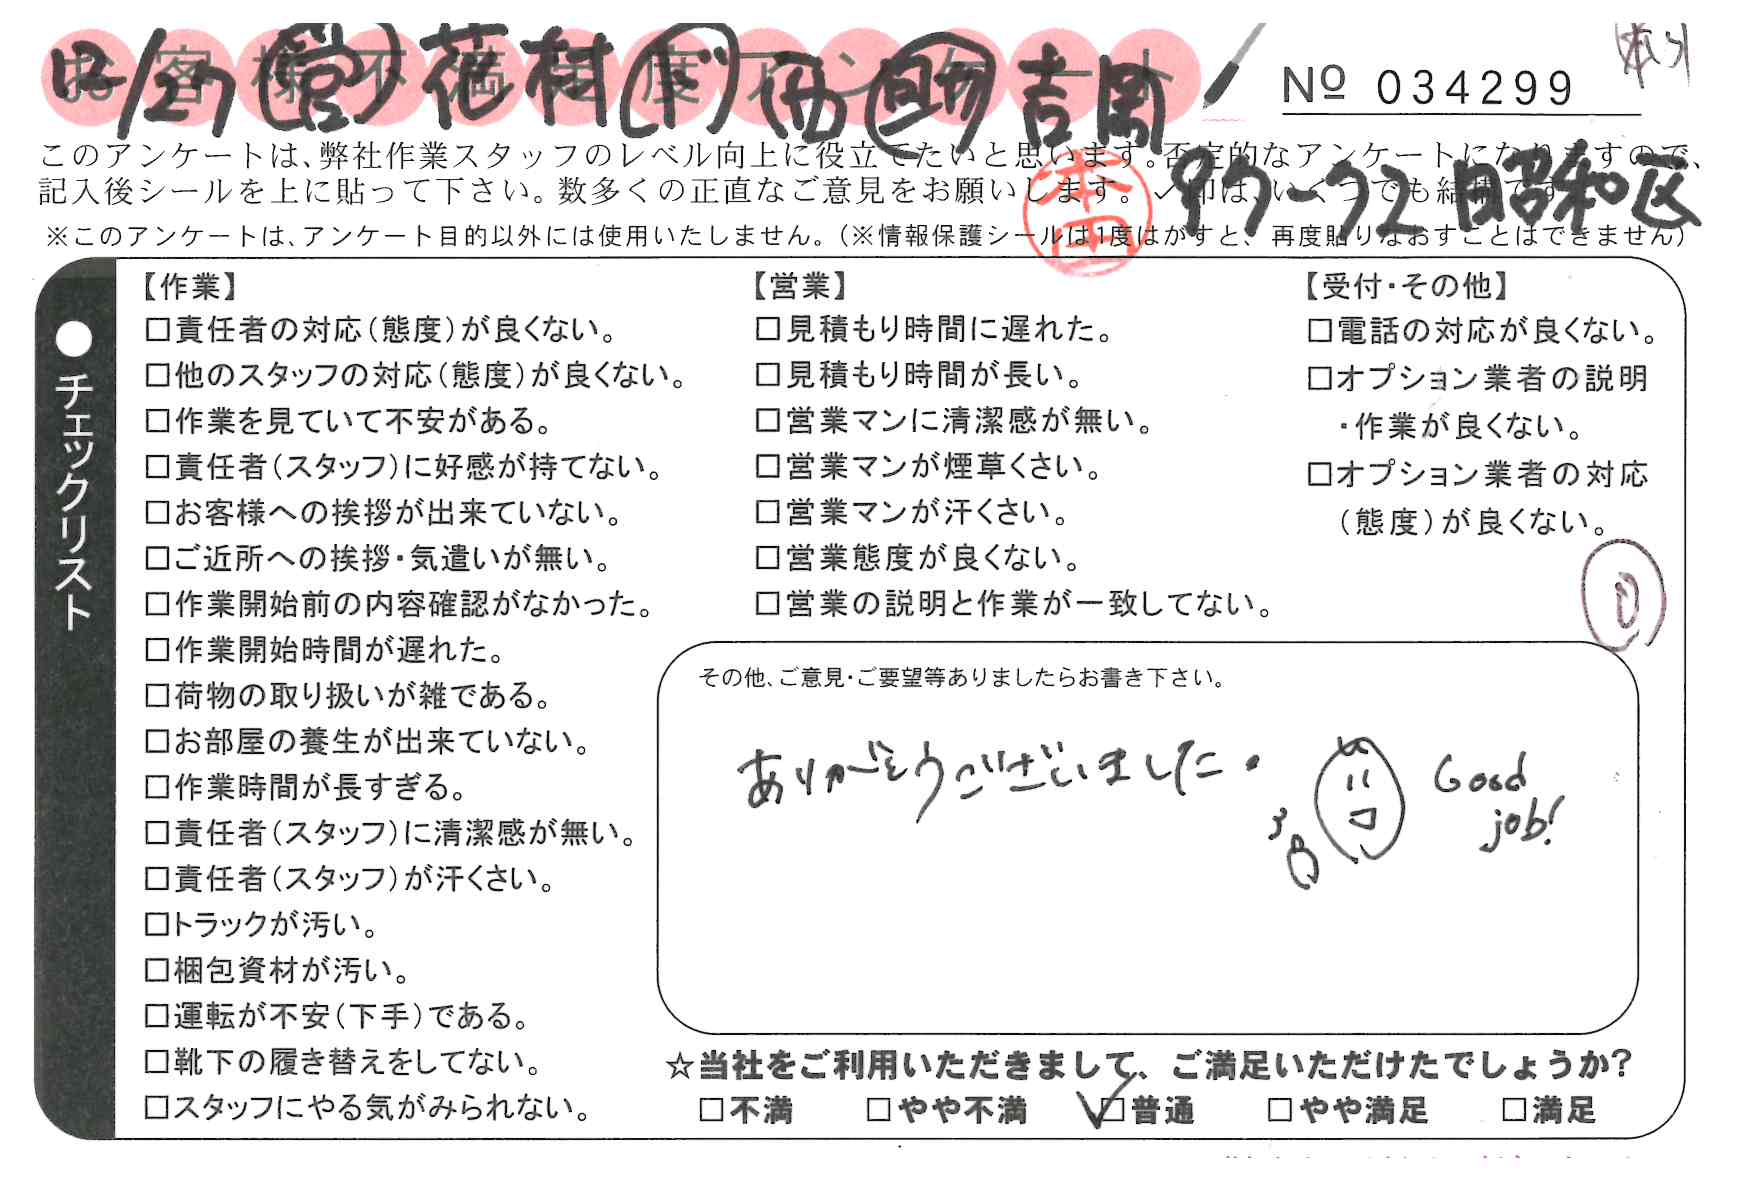 お客様不満足度アンケート
12/27 (営) 花村 (ド) 西 (助) 吉岡
Nº 034299
このアンケートは、弊社作業スタッフのレベル向上に役立てたいと思います。否定的なアンケートになりますので、
記入後シールを上に貼って下さい。数多くの正直なご意見をお願いします。✓印は、いくつでも結構です
本田
97-72 昭和区
※このアンケートは、アンケート目的以外には使用いたしません。(※情報保護シールは1度はがすと、再度貼りなおすことはできません)
●チェックリスト
【作業】
□責任者の対応(態度)が良くない。
□他のスタッフの対応(態度)が良くない。
□作業を見ていて不安がある。
□責任者(スタッフ)に好感が持てない。
□お客様への挨拶が出来ていない。
□ご近所への挨拶・気遣いが無い。
□作業開始前の内容確認がなかった。
□作業開始時間が遅れた。
□荷物の取り扱いが雑である。
□お部屋の養生が出来ていない。
□作業時間が長すぎる。
□責任者(スタッフ)に清潔感が無い。
□責任者(スタッフ)が汗くさい。
□トラックが汚い。
□梱包資材が汚い。
□運転が不安(下手)である。
□靴下の履き替えをしてない。
□スタッフにやる気がみられない。
【営業】
□見積もり時間に遅れた。
□見積もり時間が長い。
□営業マンに清潔感が無い。
□営業マンが煙草くさい。
□営業マンが汗くさい。
□営業態度が良くない。
□営業の説明と作業が一致してない。
【受付・その他】
□電話の対応が良くない。
□オプション業者の説明
・作業が良くない。
□オプション業者の対応
(態度)が良くない。
その他、ご意見・ご要望等ありましたらお書き下さい。
ありがとうございました。
Good
job!
☆当社をご利用いただきまして、ご満足いただけたでしょうか?
□不満 □やや不満 ☑普通 □やや満足 □満足